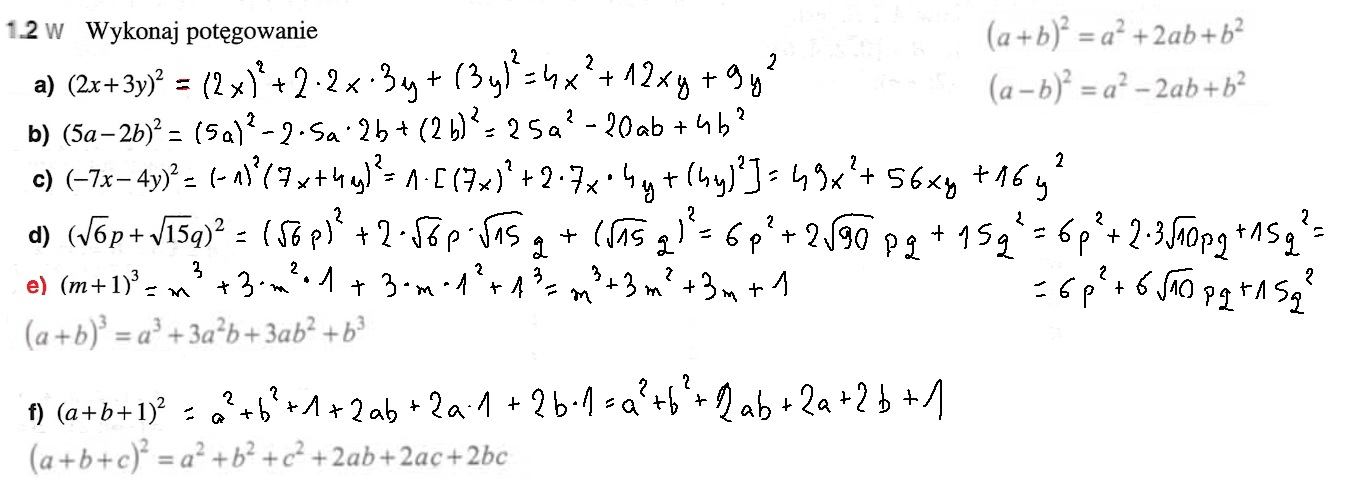 1.2 W Wykonaj potęgowanie
(a+b)² = a² + 2ab + b²
(a−b)² = a² − 2ab + b²
a) (2x+3y)² = (2x)² + 2·2x·3y + (3y)² = 4x² + 12xy + 9y²
b) (5a−2b)² = (5a)² − 2·5a·2b + (2b)² = 25a² − 20ab + 4b²
c) (−7x−4y)² = (−1)²(7x+4y)² = 1·[(7x)² + 2·7x·4y + (4y)²] = 49x² + 56xy + 16y²
d) (√6p + √15q)² = (√6p)² + 2·√6p·√15q + (√15q)² = 6p² + 2√90pq + 15q² = 6p² + 2·3√10pq + 15q² =
= 6p² + 6√10pq + 15q²
e) (m+1)³ = m³ + 3·m²·1 + 3·m·1² + 1³ = m³ + 3m² + 3m + 1
(a+b)³ = a³ + 3a²b + 3ab² + b³
f) (a+b+1)² = a² + b² + 1 + 2ab + 2a·1 + 2b·1 = a² + b² + 2ab + 2a + 2b + 1
(a+b+c)² = a² + b² + c² + 2ab + 2ac + 2bc